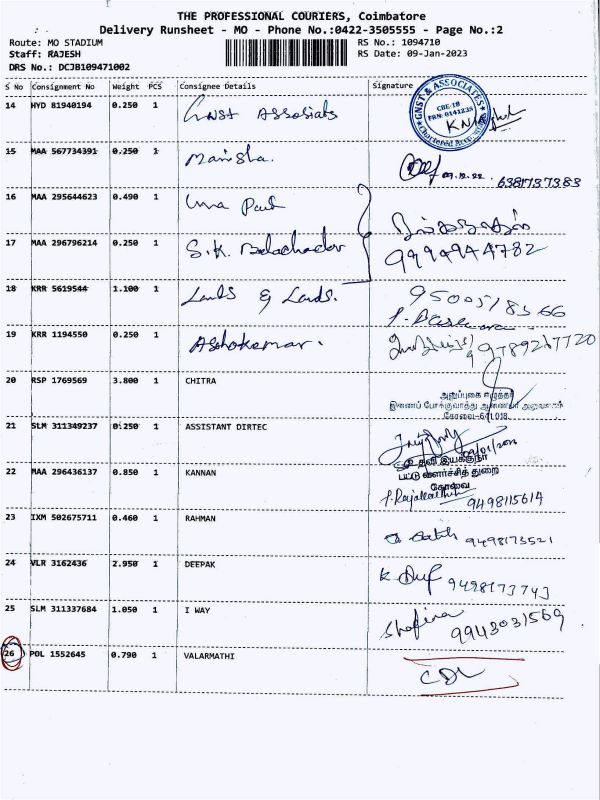 THE PROFESSIONAL COURIERS, Coimbatore
Delivery Runsheet - MO - Phone No.:0422-3505555 - Page No.:2
Route: MO STADIUM RS No.: 1094710
Staff: RAJESH RS Date: 09-Jan-2023
DRS No.: DCJB109471002
S No Consignment No Weight PCS Consignee Details Signature
14 HYD 81940194 0.250 1 GNST Associats
GNST & ASSOCIATES CBE-18 FRN: 014123S Chartered Accountants
15 MAA 567734391 0.250 1 Manisha. 6381737383
16 MAA 295644623 0.490 1 Uma
17 MAA 296796214 0.250 1 S.K. 9994944782
18 KRR 5619544 1.100 1 Lands & Lands.
19 KRR 1194550 0.250 1 Ashokumar. 9789267720
20 RSP 1769569 3.800 1 CHITRA
கோவை-641018
21 SLM 311349237 0.250 1 ASSISTANT DIRTEC
22 MAA 296436137 0.850 1 KANNAN
கோவை
9498115614
23 IXM 502675711 0.460 1 RAHMAN 9498173521
24 VLR 3162436 2.950 1 DEEPAK 9498173743
25 SLM 311337684 1.050 1 I WAY Shafina 9943031569
26 POL 1552645 0.790 1 VALARMATHI